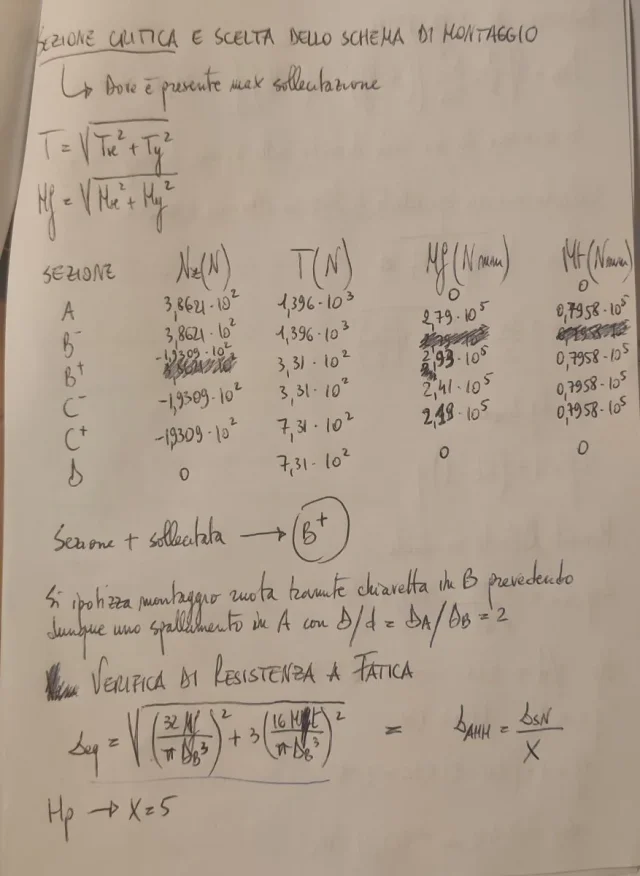 SEZIONE CRITICA E SCELTA DELLO SCHEMA DI MONTAGGIO
↳ Dove è presente max sollecitazione
T = √(Tx² + Ty²)
Mf = √(Mx² + My²)
SEZIONE Nz(N) T(N) Mf(Nmm) Mt(Nmm)
A 3,8621·10² 1,396·10³ 0 0
B⁻ 3,8621·10² 1,396·10³ 2,79·10⁵ 0,7958·10⁵
B⁺ -1,9309·10² 3,31·10² 2,93·10⁵ 0,7958·10⁵
C⁻ -1,9309·10² 3,31·10² 2,41·10⁵ 0,7958·10⁵
C⁺ -1,9309·10² 7,31·10² 2,49·10⁵ 0,7958·10⁵
D 0 7,31·10² 0 0
Sezione + sollecitata → B⁺
Si ipotizza montaggio ruota tramite chiavetta in B prevedendo
dunque uno spallamento in A con D/d = DA/DB = 2
VERIFICA DI RESISTENZA A FATICA
σeq = √((32 Mf / π DB³)² + 3 (16 Mt / π DB³)²) = σAMM = σSN / X
Hp → X = 5